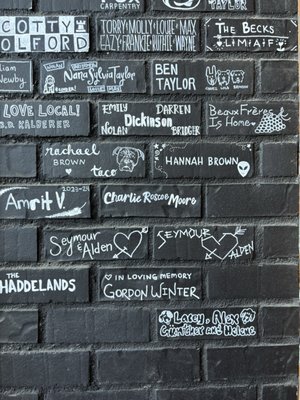 CARPENTRY
TAYLOR
SCOTTY
OLFORD
TORRY·MOLLY·LOUIE·MAX
EAZY·FRANKIE·KATHIE·WAYNE
THE BECKS
LIMIAIF
liam
Newby
Nana Sylvia Taylor
BEN
TAYLOR
LOVE LOCAL!
B.D. KALBERER
EMILY DARREN
Dickinson
NOLAN BRIDGER
BEAUX FRÈRES
IS HOME
rachael
BROWN
taco
HANNAH BROWN
2023-24
Amrit V.
Charlie Roscoe Moore
Seymour
& Alden
SEYMOUR
ALDEN
THE
HADDELANDS
IN LOVING MEMORY
GORDON WINTER
Lacey, Alex